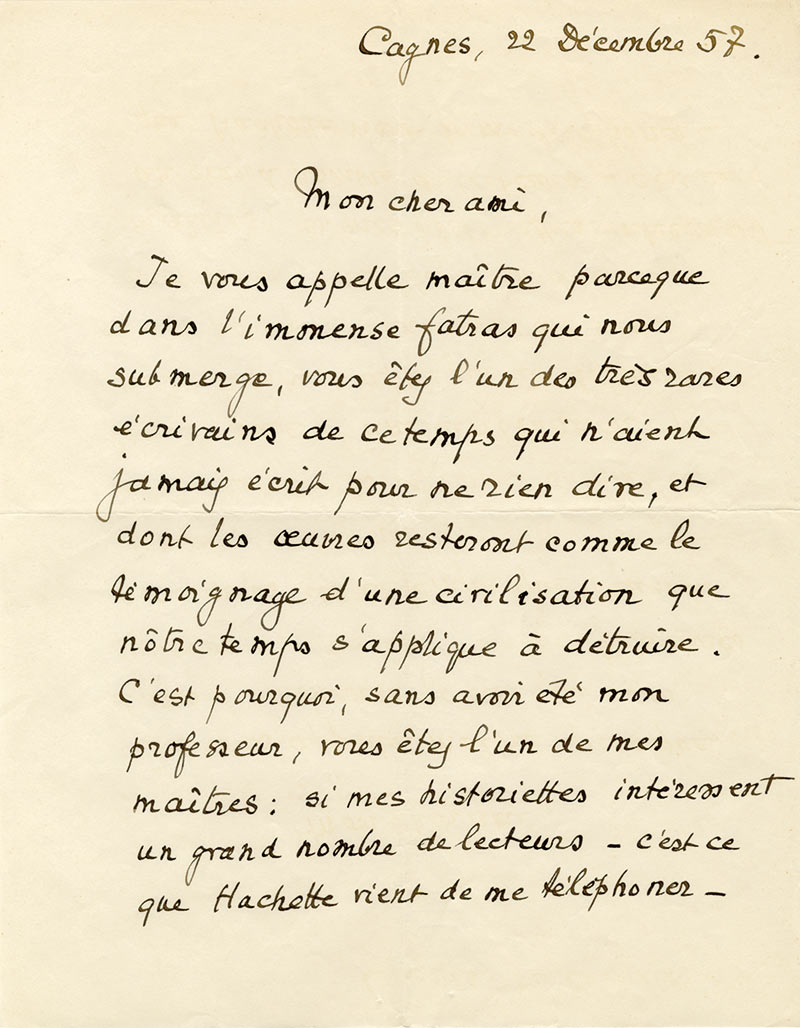 Cagnes, 22 Décembre 57.
Mon cher ami,
Je vous appelle maître parceque
dans l'immense fatras qui nous
submerge, vous êtes l'un des très rares
écrivains de ce temps qui n'aient
jamais écrit pour ne rien dire, et
dont les œuvres resteront comme le
témoignage d'une civilisation que
nôtre temps s'applique à détruire.
C'est pourquoi, sans avoir été mon
professeur, vous êtes l'un de mes
maîtres : si mes historiettes intéressent
un grand nombre de lecteurs - c'est ce
que Hachette vient de me téléphoner -